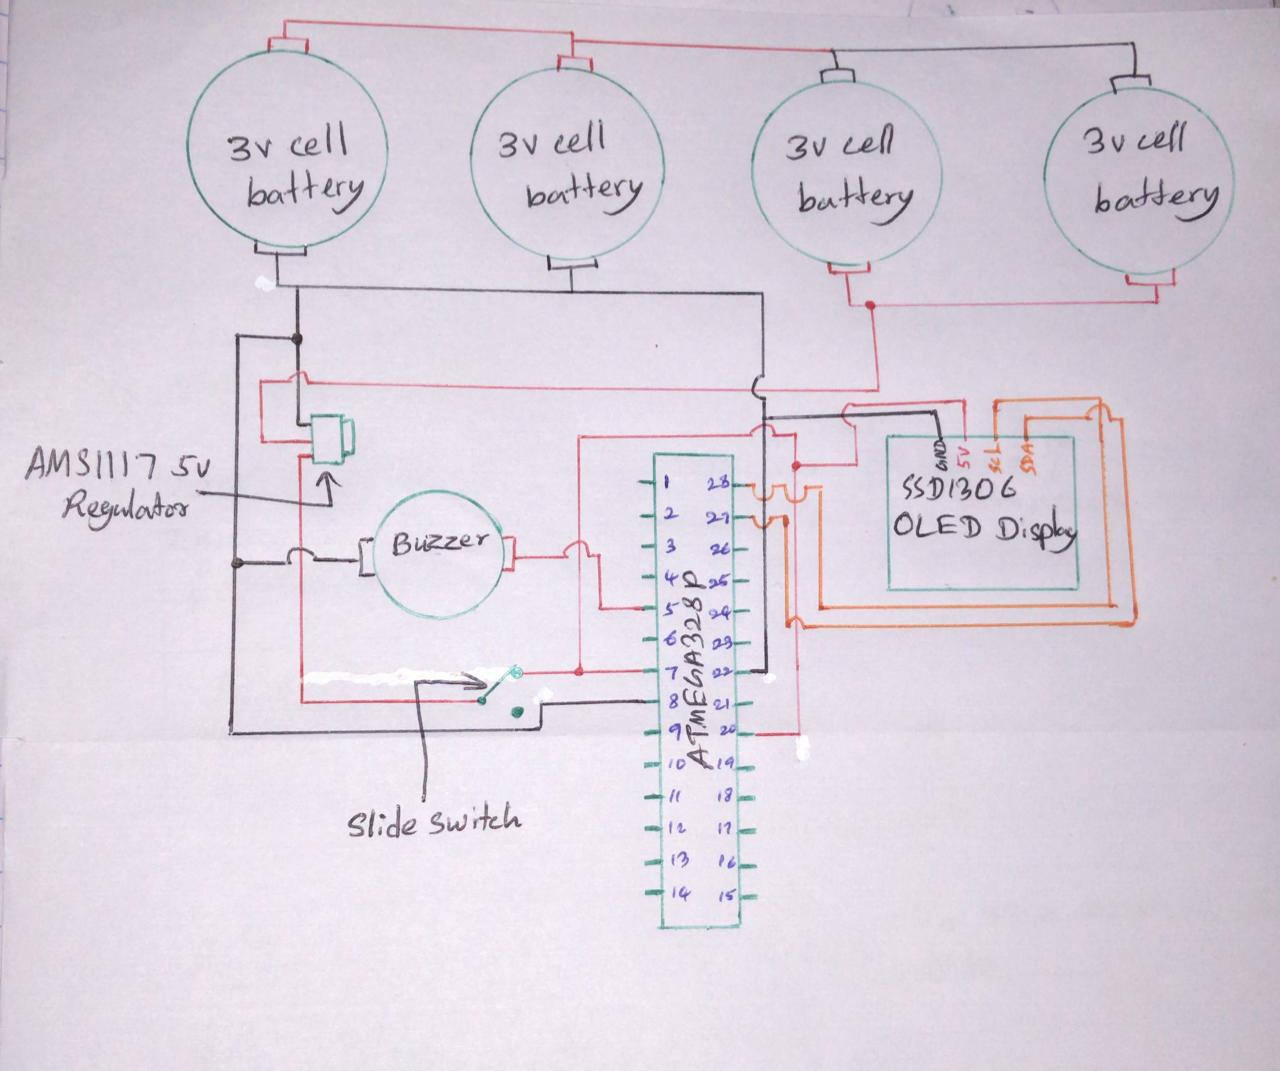 3v cell
battery
3v cell
battery
3v cell
battery
3v cell
battery
AMS1117 5v
Regulator
Buzzer
GND
5V
SCL
SDA
SSD1306
OLED Display
ATMEGA328P
1
2
3
4
5
6
7
8
9
10
11
12
13
14
28
27
26
25
24
23
22
21
20
19
18
17
16
15
Slide switch